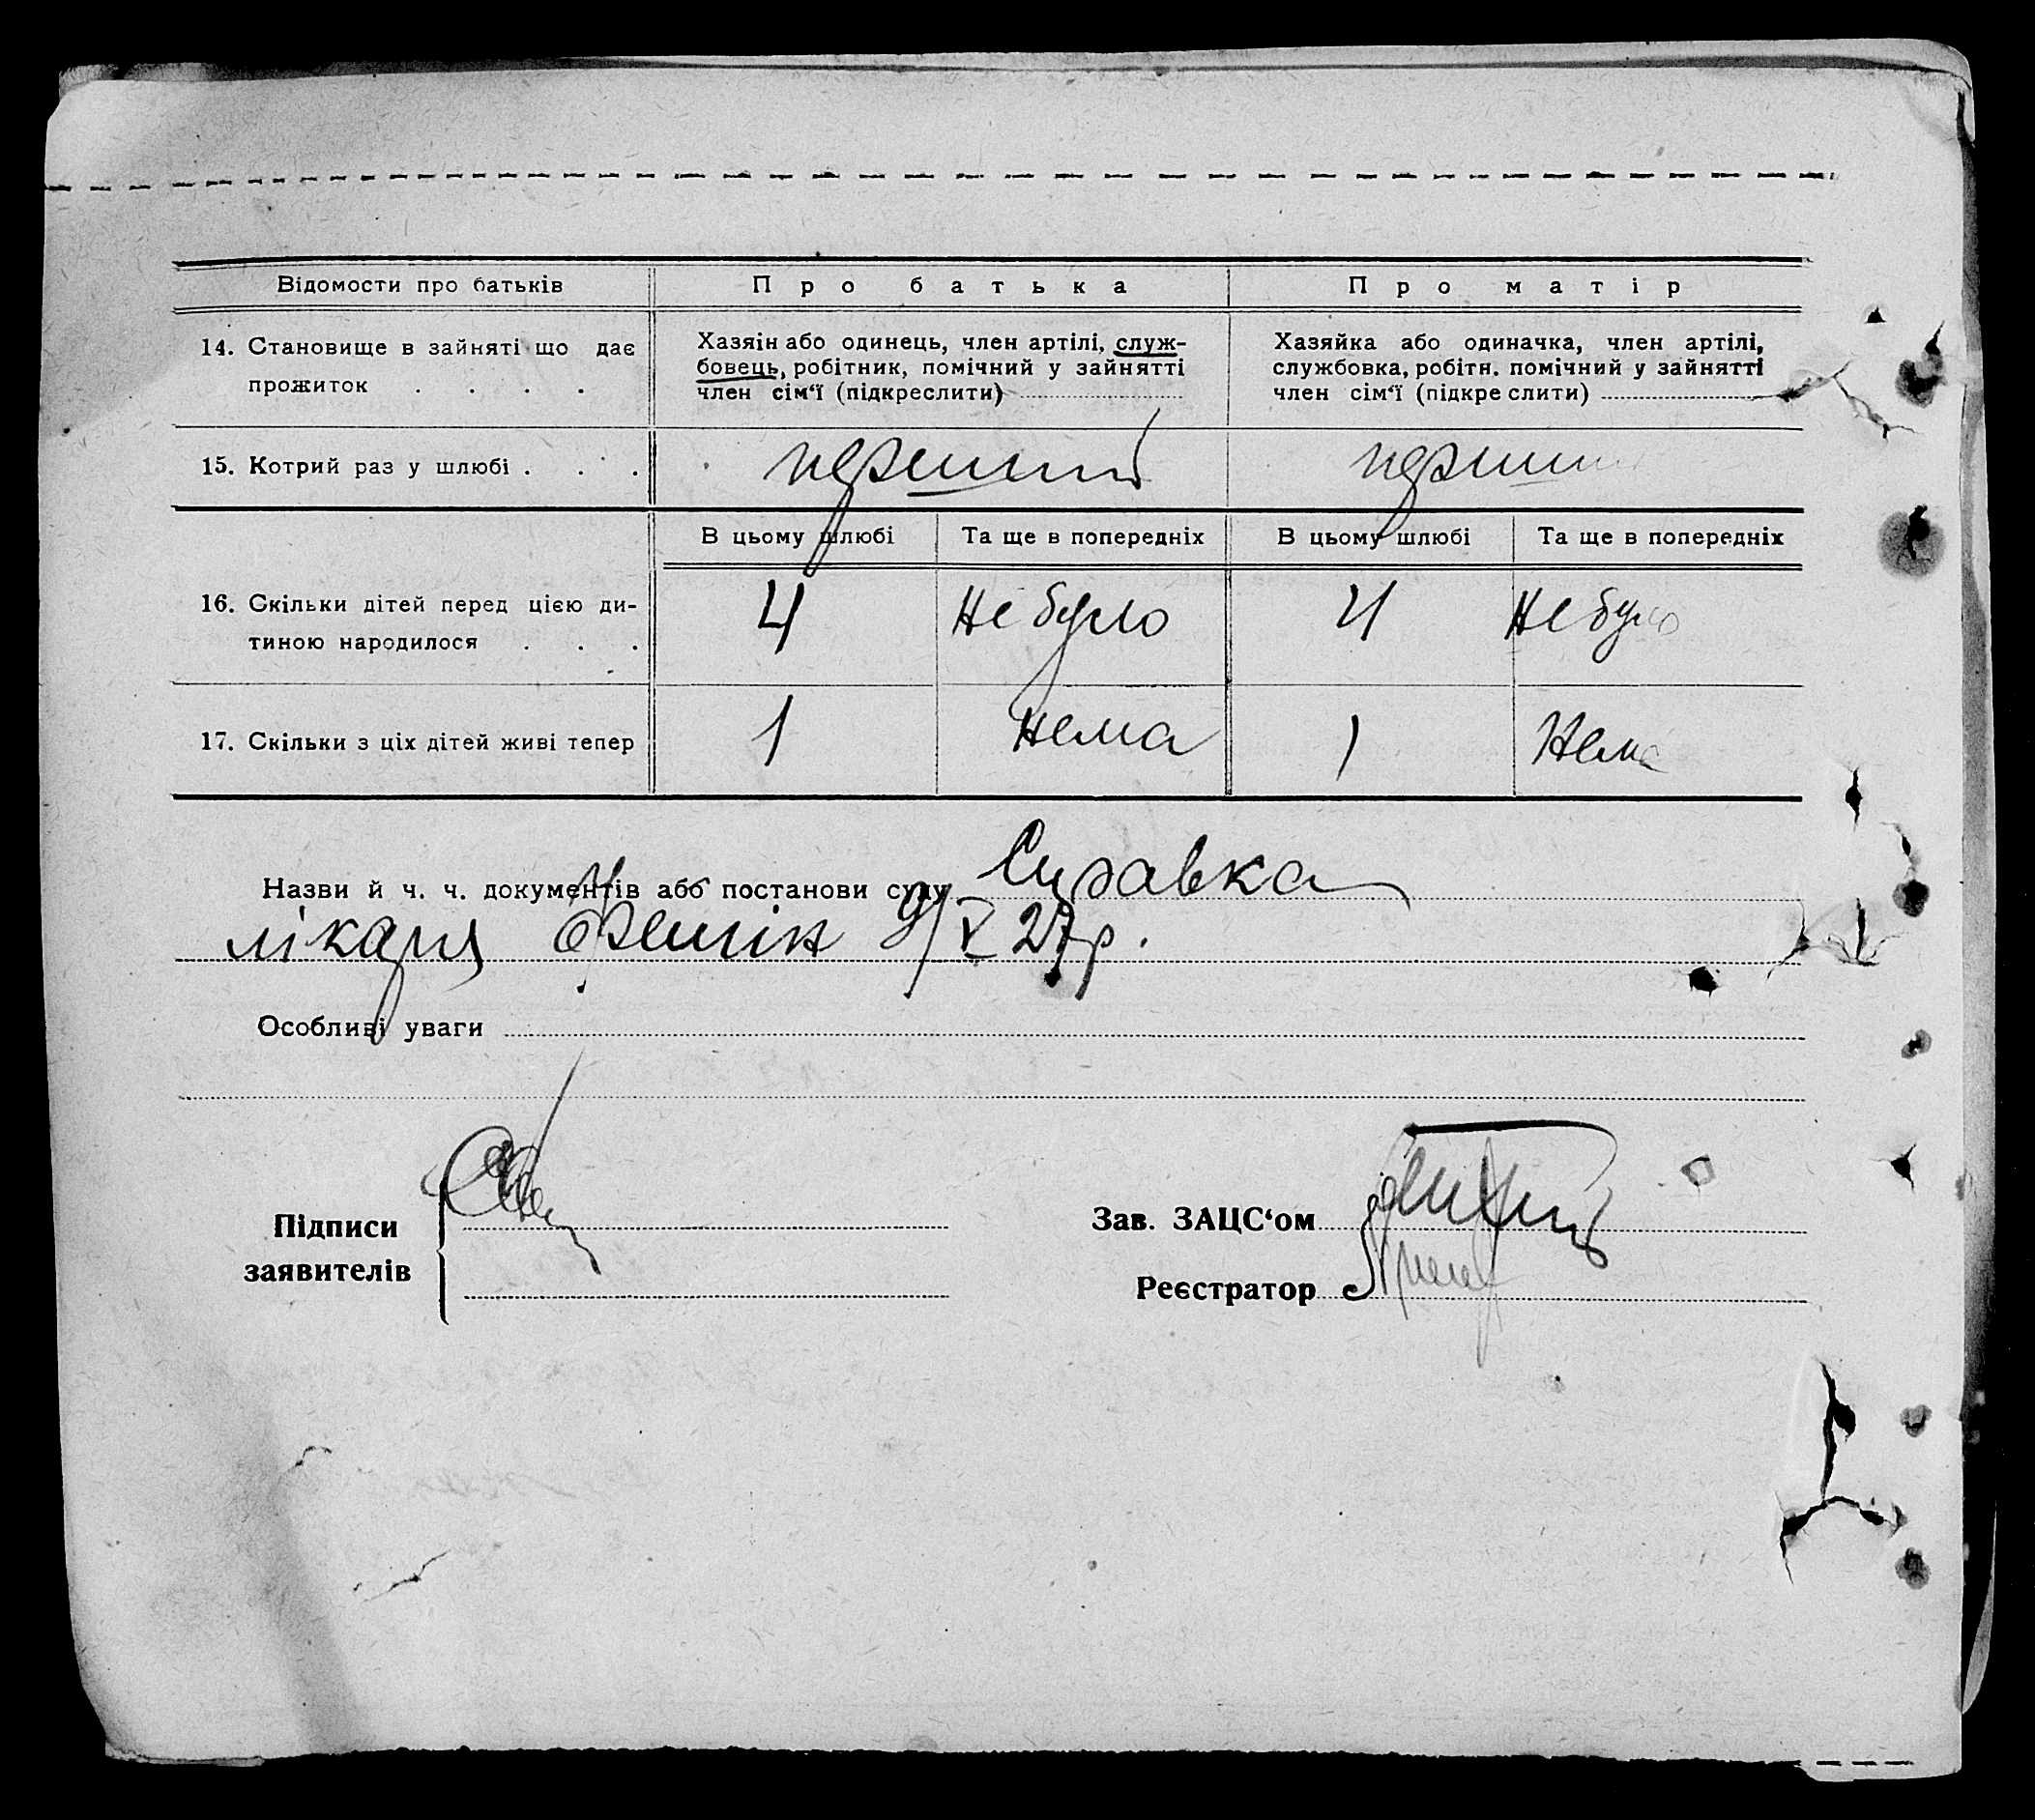 Відомости про батьків
Про батька
Про матір
14. Становище в зайняті що дає
прожиток . . . .
Хазяін або одинець, член артілі, служ-
бовець, робітник, помічний у зайнятті
член сім‘ї (підкреслити)
Хазяйка або одиначка, член артілі,
службовка, робітн. помічний у зайнятті
член сім‘ї (підкреслити)
15. Котрий раз у шлюбі . . .
перший
перши
В цьому шлюбі
Та ще в попередніх
В цьому шлюбі
Та ще в попередніх
16. Скільки дітей перед цією ди-
тиною народилося . . .
4
Не було
4
Не було
17. Скільки з ціх дітей живі тепер
1
Нема
1
Нема
Назви й ч. ч. документів або постанови суду Справка
лікаря 9/V 27 р.
Особливі уваги
Підписи
заявителів
Зав. ЗАЦС‘ом
Реєстратор